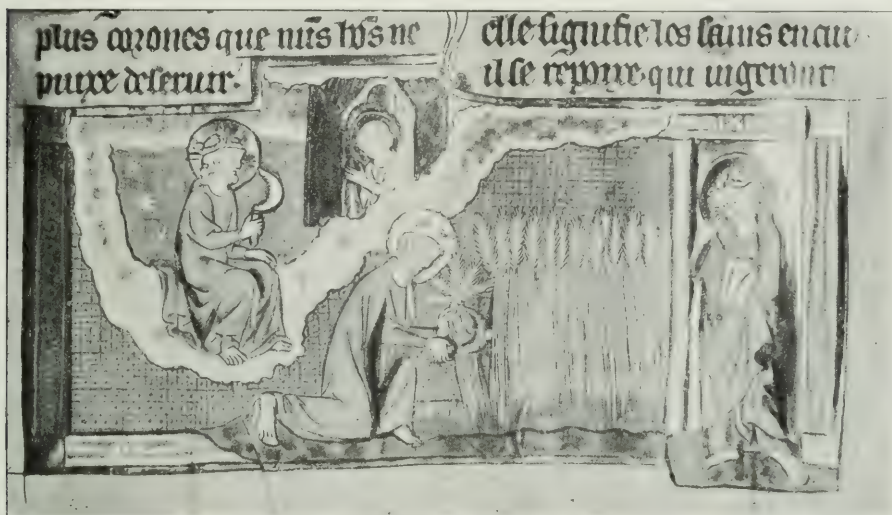 plus corones que nūs hōs ne
puixe deseruir.
elle signifie los sains en cui
il se repoixe. qui iugeront